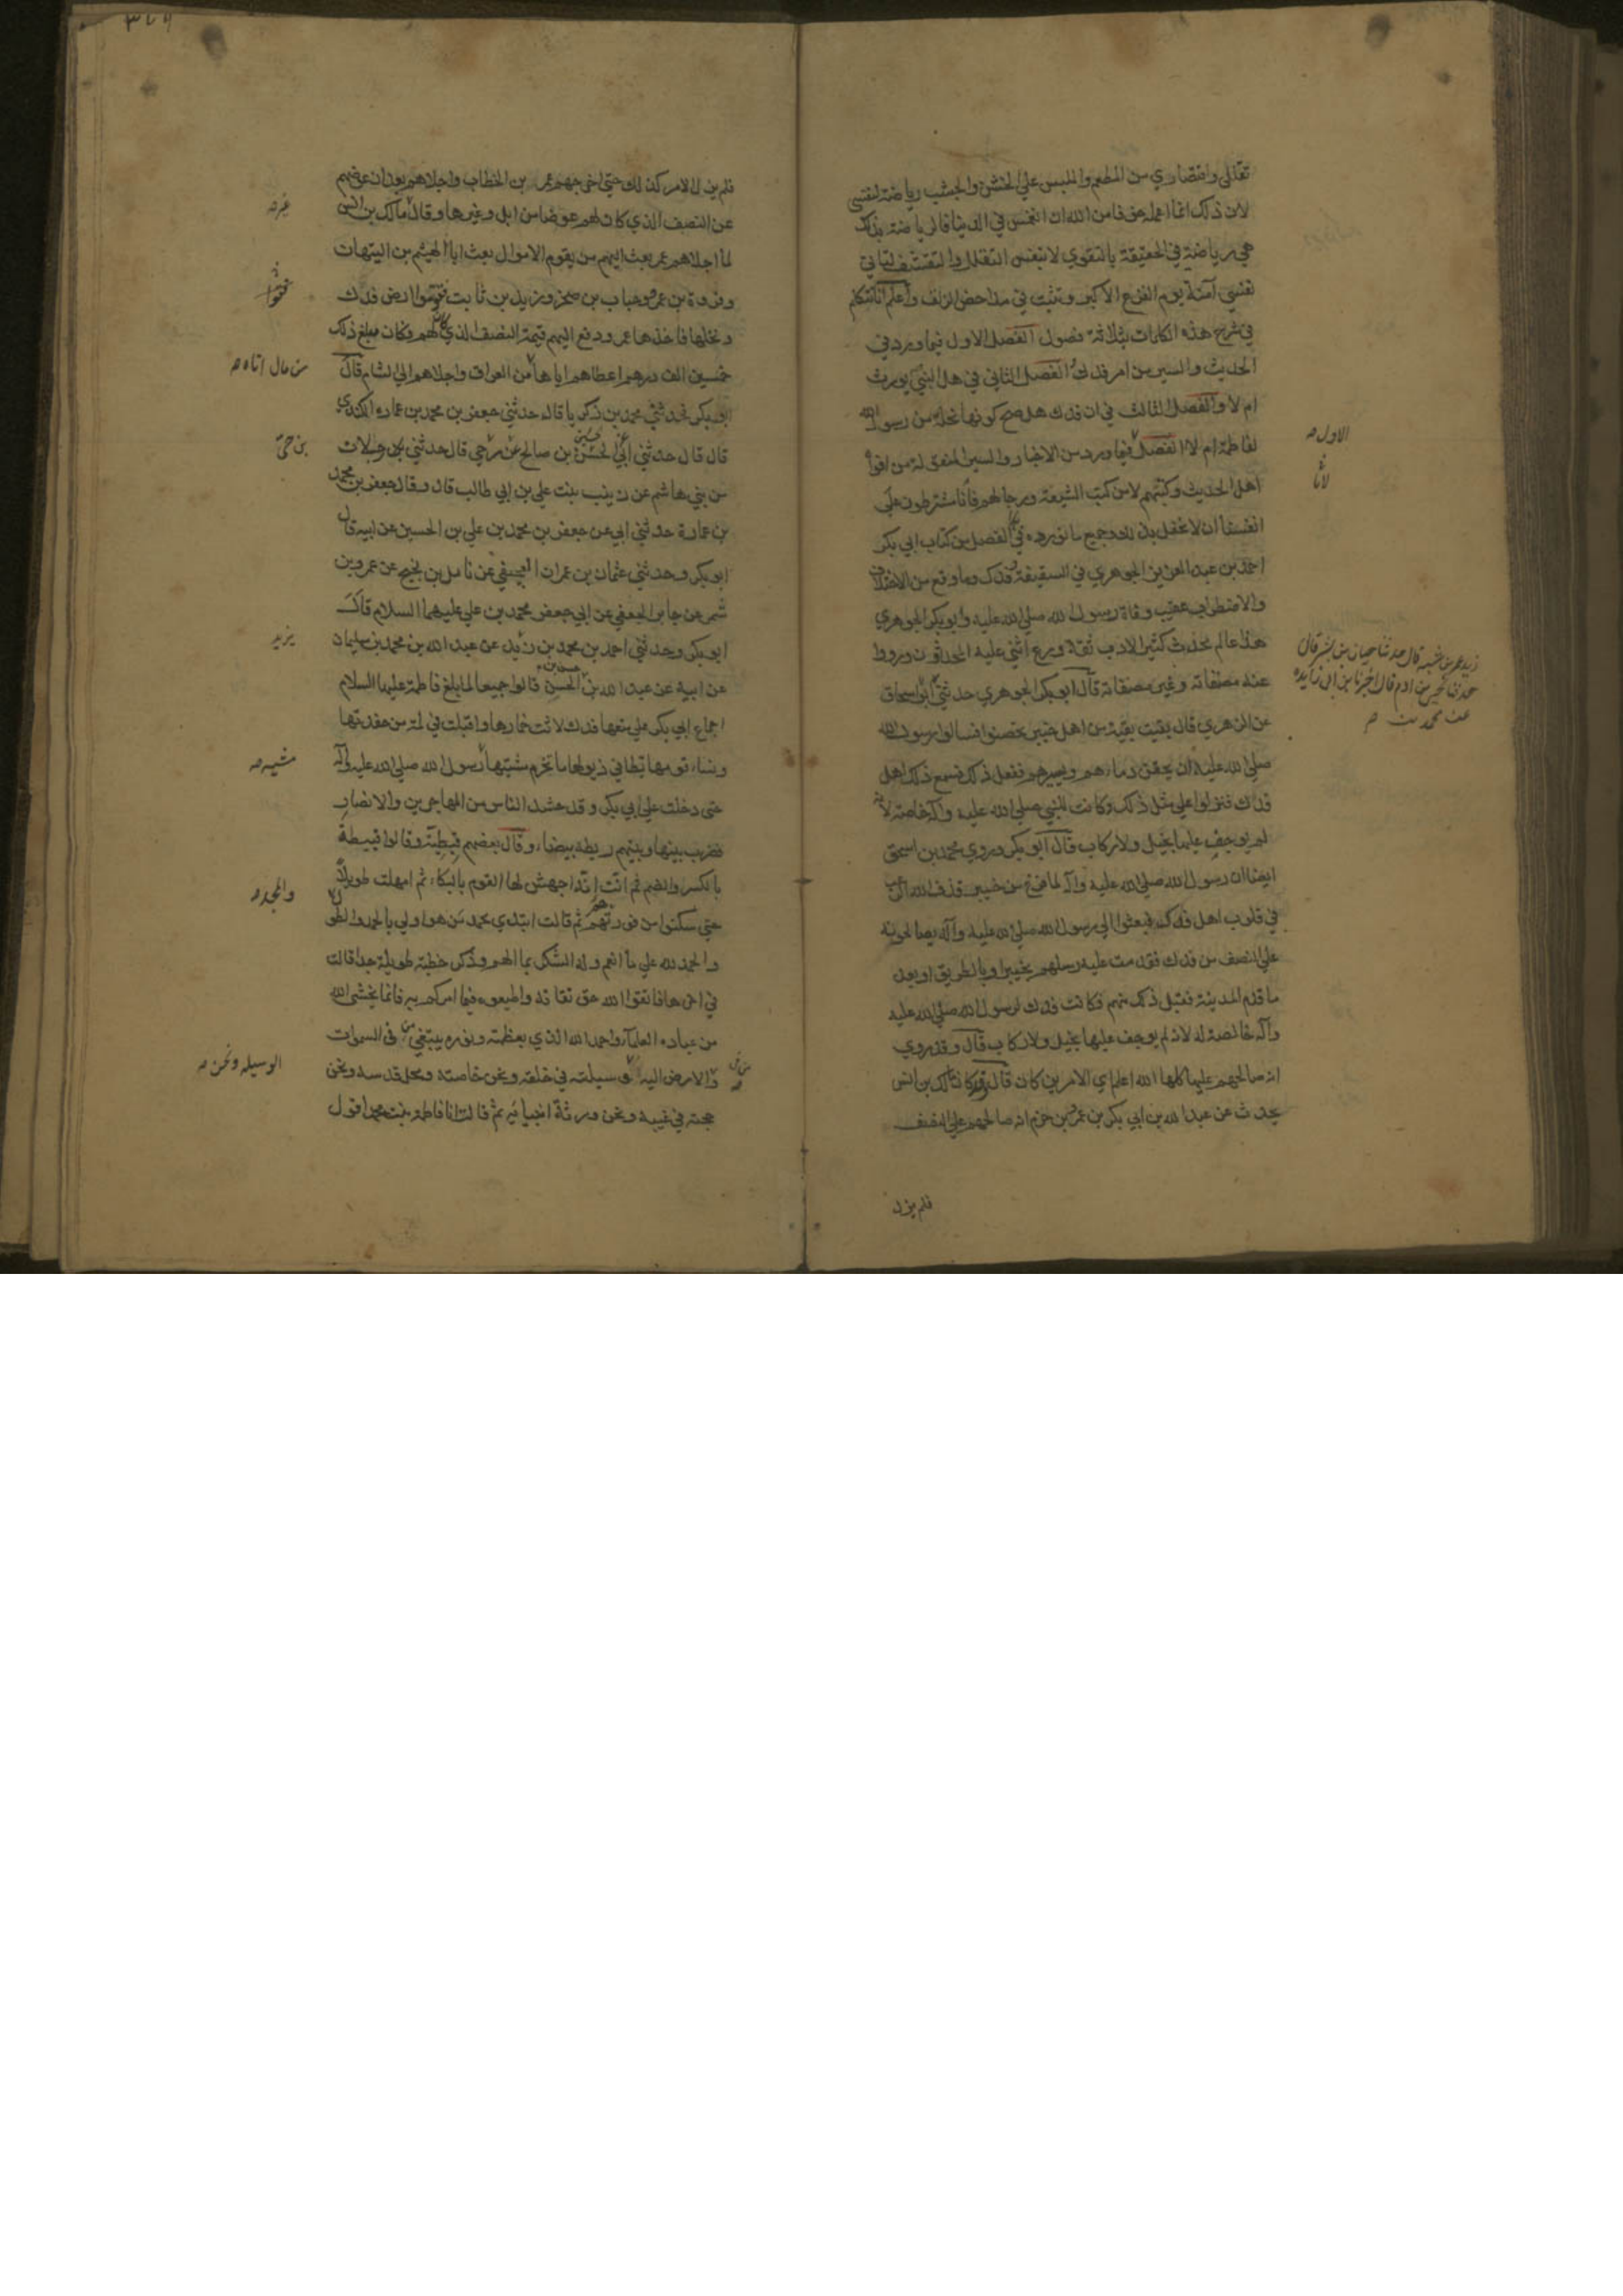 تقللي واقتصاري من المطعم والملبس علي الخشن والجشب رياضة لنفسي
لان ذلك انما اعمله خوفا من الله ان انغمس في الدنيا فالرياضة بذلك
هي رياضة في الحقيقة بالتقوي لا بنفس التقلل والتقشف لتاتي
نفسي آمنة يوم الفزع الاكبر وتثبت في مداحض الزلق واعلم انا نتكلم
في شرح هذه الكلمات بثلاثة فصول الفصل الاول فيما ورد في
الحديث والسير من امر فدك الفصل الثاني في هل النبي يورث
ام لا والفصل الثالث في ان فدك هل صح كونها نحلة من رسول الله
لفاطمة ام لا الفصل فيما ورد من الاخبار والسير المنقولة من افواه
الاول
اهل الحديث وكتبهم لا من كتب الشيعة ورجالهم فانا مشترطون علي
لانا
انفسنا ان لا نحفل بذلك وجميع ما نورده في الفصل من كتاب ابي بكر
احمد بن عبد العزيز الجوهري في السقيفة وفدك وما وقع من الاختلاف
والاضطراب عقيب وفاة رسول الله صلي الله عليه وابو بكر الجوهري
هذا عالم محدث كثير الادب ثقة ورع اثني عليه المحدثون ورووا
زيد عمر بن شبه قال حدثنا حيان بن بشر قال
حدثنا يحيي بن ادم قال اخبرنا ابن ابي زايده
عن محمد بن
عنه مصنفاته وغير مصنفاته قال ابو بكر الجوهري حدثني ابو اسحاق
عن الزهري قال بقيت بقية من اهل خيبر تحصنوا فسالوا رسول الله
صلي الله عليه ان يحقن دماءهم ويسيرهم ففعل ذلك فسمع ذلك اهل
فدك فنزلوا علي مثل ذلك وكانت للنبي صلي الله عليه وآله خاصة لانه
لم يوجف عليها بخيل ولا ركاب قال ابو بكر وروي محمد بن اسحق
ايضا ان رسول الله صلي الله عليه وآله لما فرغ من خيبر قذف الله الرعب
في قلوب اهل فدك فبعثوا الي رسول الله صلي الله عليه وآله يصالحونه
علي النصف من فدك فقدمت عليه رسلهم بخيبر او بالطريق او بعد
ما قدم المدينة فقبل ذلك منهم فكانت فدك لرسول الله صلي الله عليه
وآله خالصة له لانه لم يوجف عليها بخيل ولا ركاب قال وقد روي
انه صالحهم عليها كلها الله اعلم اي الامرين كان قال وكان مالك بن انس
يحدث عن عبد الله بن ابي بكر بن عمرو بن حزم انه صالحهم علي النصف
فلم يزل
فلم يزل الامر كذلك حتي اخرجهم عمر بن الخطاب واجلاهم بعد ان عوضهم
عن النصف الذي كان لهم عوضا من ابل وغيرها وقال مالك بن انس
لما اجلاهم عمر بعث اليهم من يقوم الاموال بعث ابا الهيثم بن التيهان
وفروة بن عمرو وحباب بن صخر وزيد بن ثابت فقوموا ارض فدك
ونخلها فاخذها عمر ودفع اليهم قيمة النصف الذي لهم وكان مبلغ ذلك
خمسين الف درهم اعطاهم اياها من العراق واجلاهم الي الشام قال
من مال اتاه
ابو بكر فحدثني محمد بن زكريا قال حدثني جعفر بن محمد بن عماره الكندي
قال قال حدثني ابي الحسن بن صالح عن حي قال حدثني رجلان
بن حي
من بني هاشم عن زينب بنت علي بن ابي طالب قال وقال جعفر بن محمد
بن عمارة حدثني ابي عن جعفر بن محمد بن علي بن الحسين عن ابيه قال
ابو بكر وحدثني عثمان بن عمران العجيفي عن نايل بن نجيح عن عمرو بن
شمر عن جابر الجعفي عن ابي جعفر محمد بن علي عليهما السلام قال
ابو بكر وحدثني احمد بن محمد بن زيد عن عبد الله بن محمد بن سليمان
يزيد
عن ابيه عن عبد الله بن الحسن قالوا جميعا لما بلغ فاطمة عليها السلام
اجماع ابي بكر علي منعها فدك لاثت خمارها واقبلت في لمة من حفدتها
ونساء قومها تطا في ذيولها ما تخرم مشيتها رسول الله صلي الله عليه وآله
مشيه
حتي دخلت علي ابي بكر وقد حشد الناس من المهاجرين والانصار
فضرب بينها وبينهم ريطة بيضاء وقال بعضهم قبطية وقالوا قبيطة
بالكسر والضم ثم انت انة اجهش لها القوم بالبكاء ثم امهلت طويلا
حتي سكنوا من فورتهم ثم قالت ابتدي بحمد من هو اولي بالحمد والطول
والمجد
والحمد لله علي ما انعم وله الشكر بما الهم وذكر خطبة طويلة جدا قالت
في اخرها فاتقوا الله حق تقاته واطيعوه فيما امركم به فانما يخشي الله
من عباده العلماء واحمدوا الله الذي بعظمته ونوره يبتغي من في السموات
والارض اليه وسيلته في خلقه ونحن خاصته ومحل قدسه ونحن
الوسيله ونحن
حجته في غيبه ونحن ورثة انبيائه ثم قالت انا فاطمه بنت محمد اقول